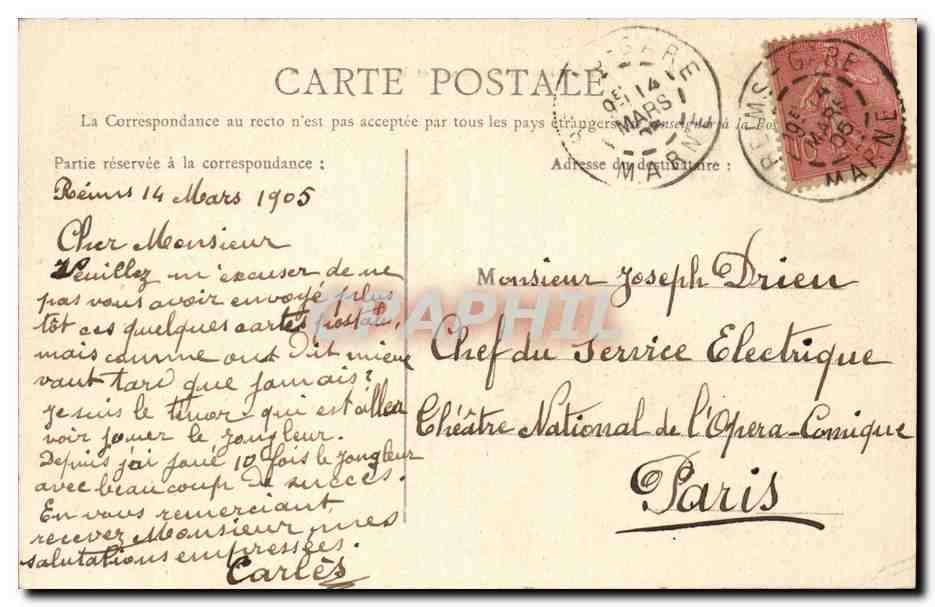 CARTE POSTALE
La Correspondance au recto n'est pas acceptée par tous les pays étrangers
Partie réservée à la correspondance :
Adresse du destinataire :
REIMS-GARE
14
MARS
05
MARNE
Réims 14 Mars 1905
Cher Monsieur
Veuillez m'excuser de ne
pas vous avoir envoyé plus
tôt ces quelques cartes postale,
mais comme on dit mieux
vaut tard que jamais?
Je suis le tenor qui est aller
voir jouer le jongleur.
Depuis j'ai joué 10 fois le jongleur
avec beaucoup de succès.
En vous remerciant,
recevez Monsieur mes
salutations empressées.
Carlès
Monsieur Joseph Drien
Chef du Service Electrique
Théâtre National de l'Opera-Comique
Paris
CPAPHIL